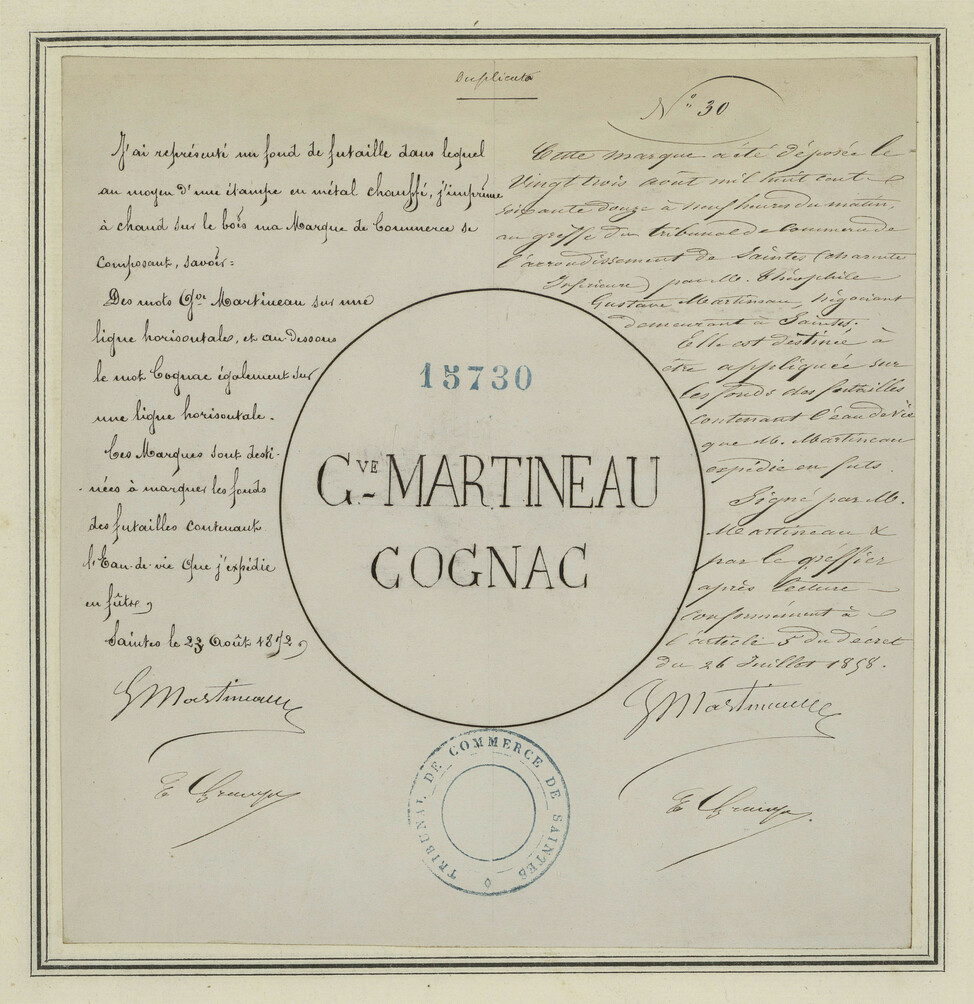 Duplicata
J'ai représenté un fond de futaille dans lequel
au moyen d'une étampe en métal chauffé, j'imprime
à chaud sur le bois ma Marque de Commerce se
composant, savoir:
Des mots Gve Martineau sur une
ligne horisontale, et au-dessous
le mot Cognac également sur
une ligne horisontale.
Ces Marques sont desti-
-nées à marquer les fonds
des futailles contenant
l'Eau-de-vie que j'expédie
en fûts,
Saintes le 23 Août 1872,
GMartineau
N° 30
Cette marque a été déposée le
vingt trois août mil huit cent
soixante douze à neuf heures du matin,
au greffe du tribunal de commerce de
l'arrondissement de Saintes (Charente
Inférieure) par M. Théophile
Gustave Martineau, négociant
demeurant à Saintes.
Elle est destinée à
être appliquée sur
les fonds des futailles
contenant l'eau de vie
que M. Martineau
expédie en futs.
Signé par M.
Martineau &
par le greffier
après lecture
conformément à
l'article 5 du décret
du 26 Juillet 1858.
GMartineau
15730
GVE MARTINEAU
COGNAC
TRIBUNAL DE COMMERCE DE SAINTES